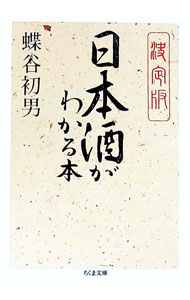 決定版
日本酒が
わかる本
蝶谷初男
ちくま文庫